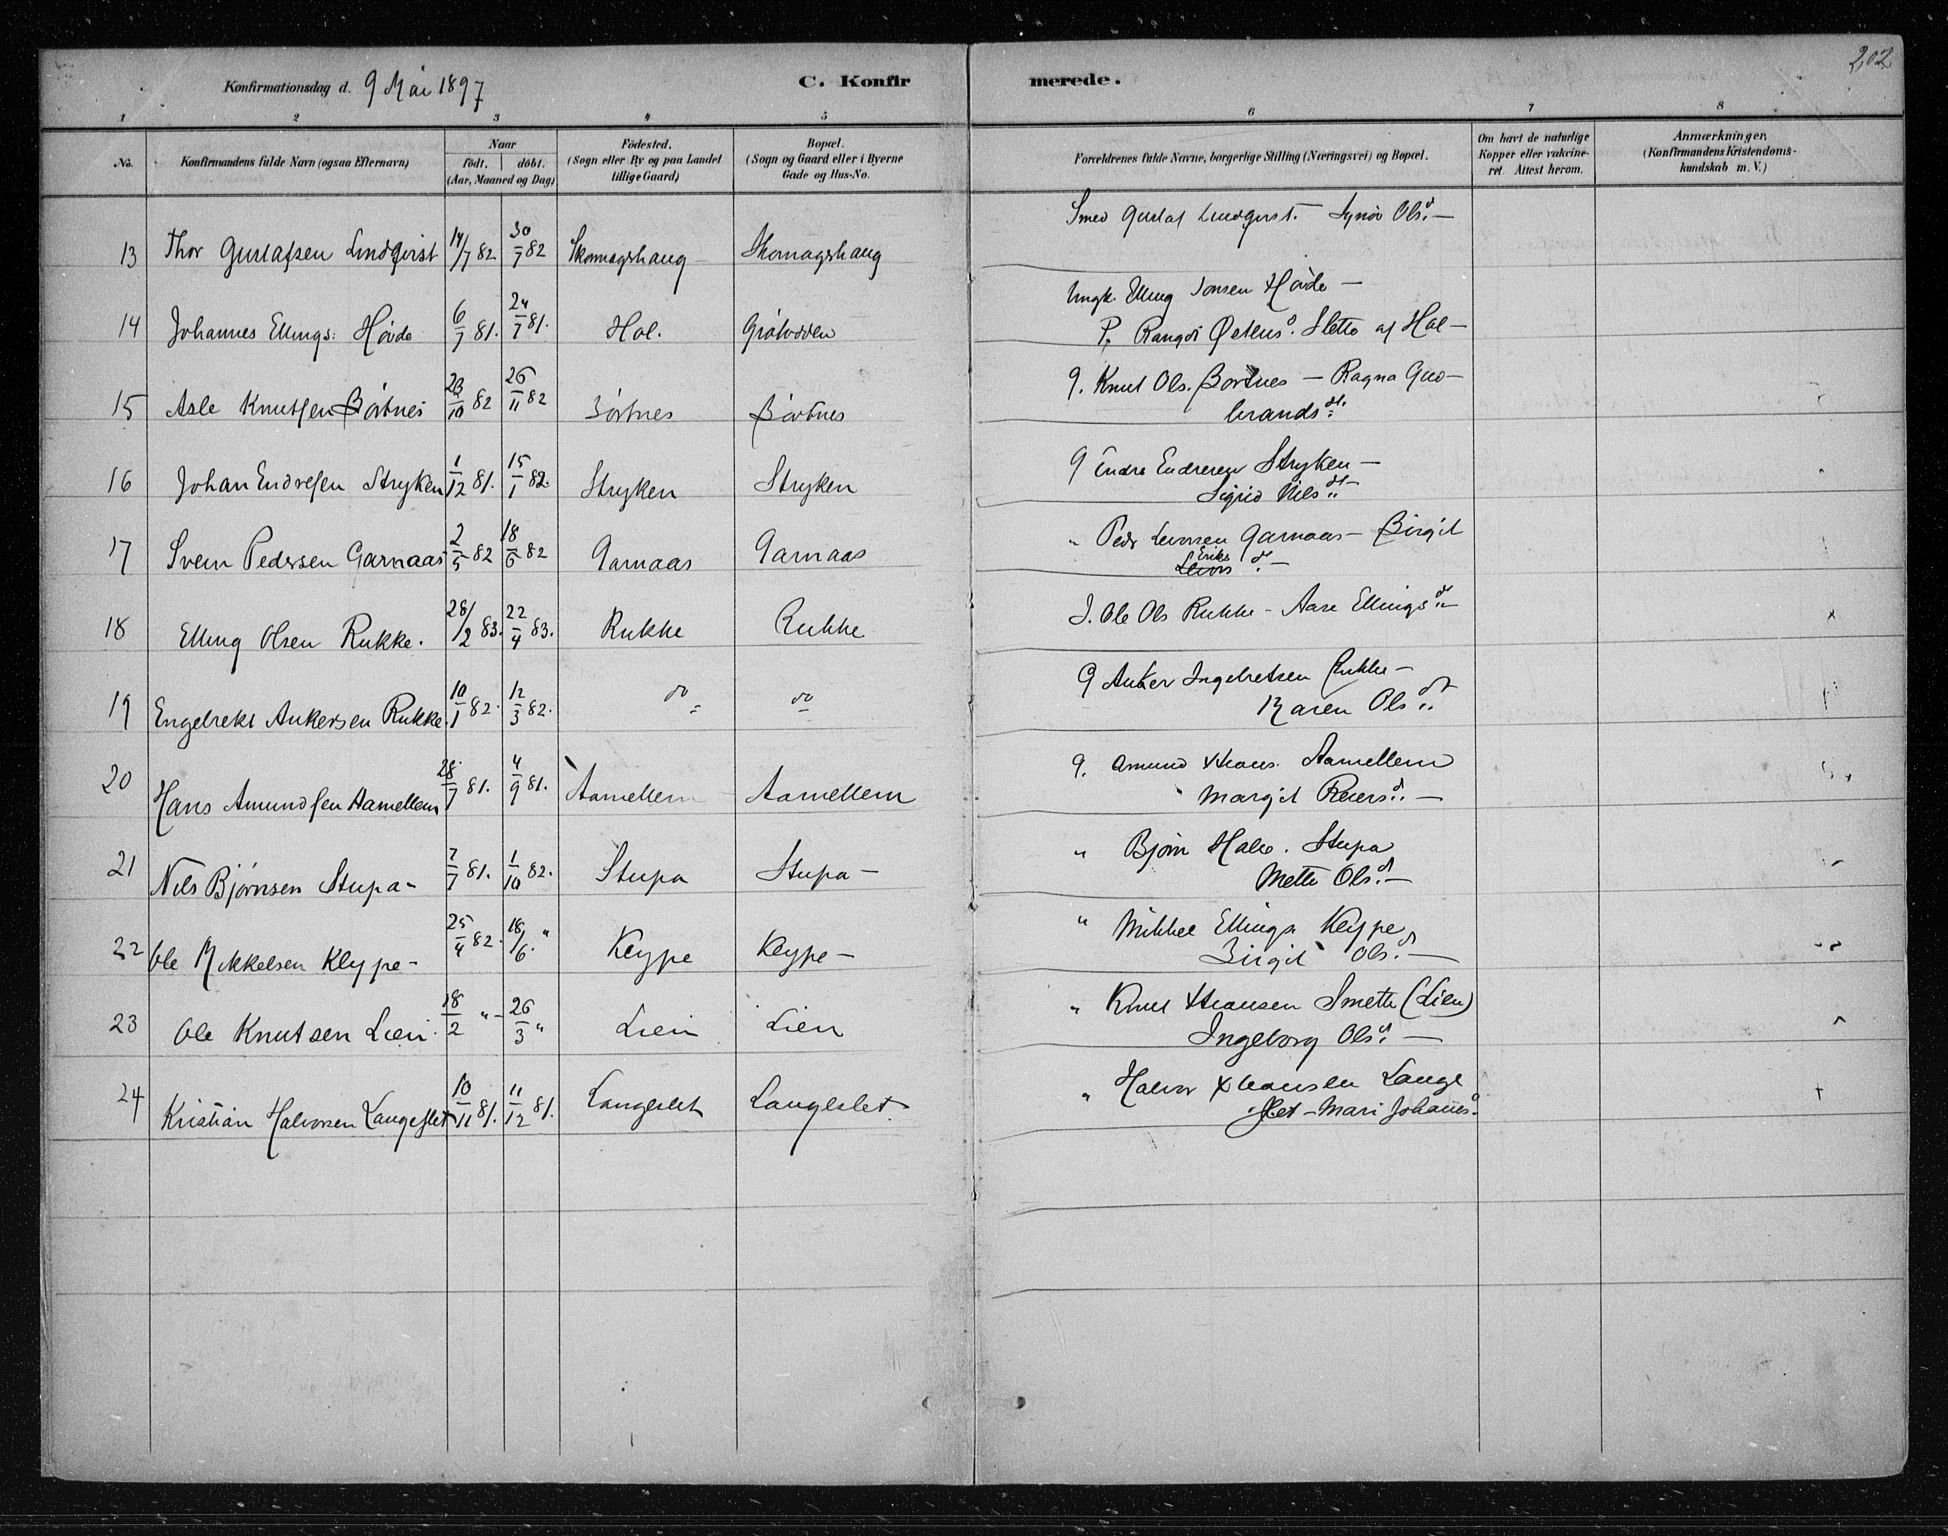 202
Konfirmationsdag d. 9 Mai 1897
C. Konfirmerede.
1 2 3 4 5 6 7 8
No. Konfirmandens fulde Navn (ogsaa Efternavn) Naar født. døbt. (Aar, Maaned og Dag) Fødested. (Sogn eller By og paa Landet tillige Gaard) Bopæl. (Sogn og Gaard eller i Byerne Gade og Hus-No. Forældrenes fulde Navne, borgerlige Stilling (Næringsvei) og Bopæl. Om havt de naturlige Kopper eller vakcineret. Attest herom. Anmærkninger. (Konfirmandens Kristendomskundskab m. V.)
13 Thor Gustafsen Lindqvist 14/7 82 30/7 82 Skomagerhaug Skomagerhaug Smed Gustaf Lindqvist. Synöv Olsd. —
14 Johannes Ellings: Høvde 6/7 81. 24/7 81. Hol. Ungk. Elling Jonsen Høvde —
P. Østens d. Sletto af Hol —
15 Asle Knutsen Børtnes 23/10 82 26/11 82 Børtnes Børtnes G. Knut Ols. Børtnes — Ragna Gud-
brands dt.
16 Johan Endresen Stryken 1/12 81. 15/1 82. Stryken Stryken G Endre Endresen Stryken —
Sigrid Nils dt —
17 Svein Pedersen Garnaas 2/5 82 18/6 82 Garnaas Garnaas " Peder Levorsen Garnaas — Birgit
Eriks
Levors d. —
18 Elling Olsen Rukke. 28/2 83. 22/4 83. Rukke Rukke J. Ole Ols Rukke - Aase Ellings dt —
19 Engebrekt Ankersen Rukke. 10/1 82. 12/3 82. do do G Anker Ingebretsen Rukke —
Karen Ols dt
20 Hans Amundsen Aamellem 28/7 81. 4/9 81. Aamellem Aamellem G. Amund Aamellem
Margit Reiers d. —
21 Nils Bjørnsen Stupa - 7/7 81. 1/10 82. Stupa Stupa — " Bjørn Halv. Stupa
Mette Ols d. —
22 Ole Mikkelsen Kleppe - 25/4 82. 18/6. " Kleppe Kleppe — " Mikkel Ellings. Kleppe
Birgit Ols d. —
23 Ole Knutsen Lien. 18/2 " - 26/3 " Lien Lien " Knut Smette (Lien)
Ingeborg Ols d. —
24 Kristian Halvorsen Langeslet 10/11 81. 11/12 81. Langeslet Langeslet " Halvor Lange
slet — Mari Johannes d.